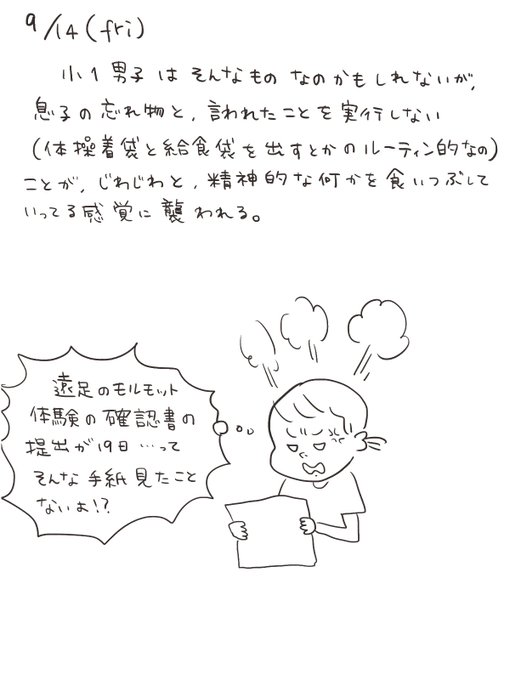 9/14(fri)
小1男子はそんなものなのかもしれないが、
息子の忘れ物と、言われたことを実行しない
(体操着袋と給食袋を出すとかのルーティン的なの)
ことが、じわじわと、精神的な何かを食いつぶして
いってる感覚に襲われる。
遠足のモルモット
体験の確認書の
提出が19日…って
そんな手紙見たこと
ないよ!?